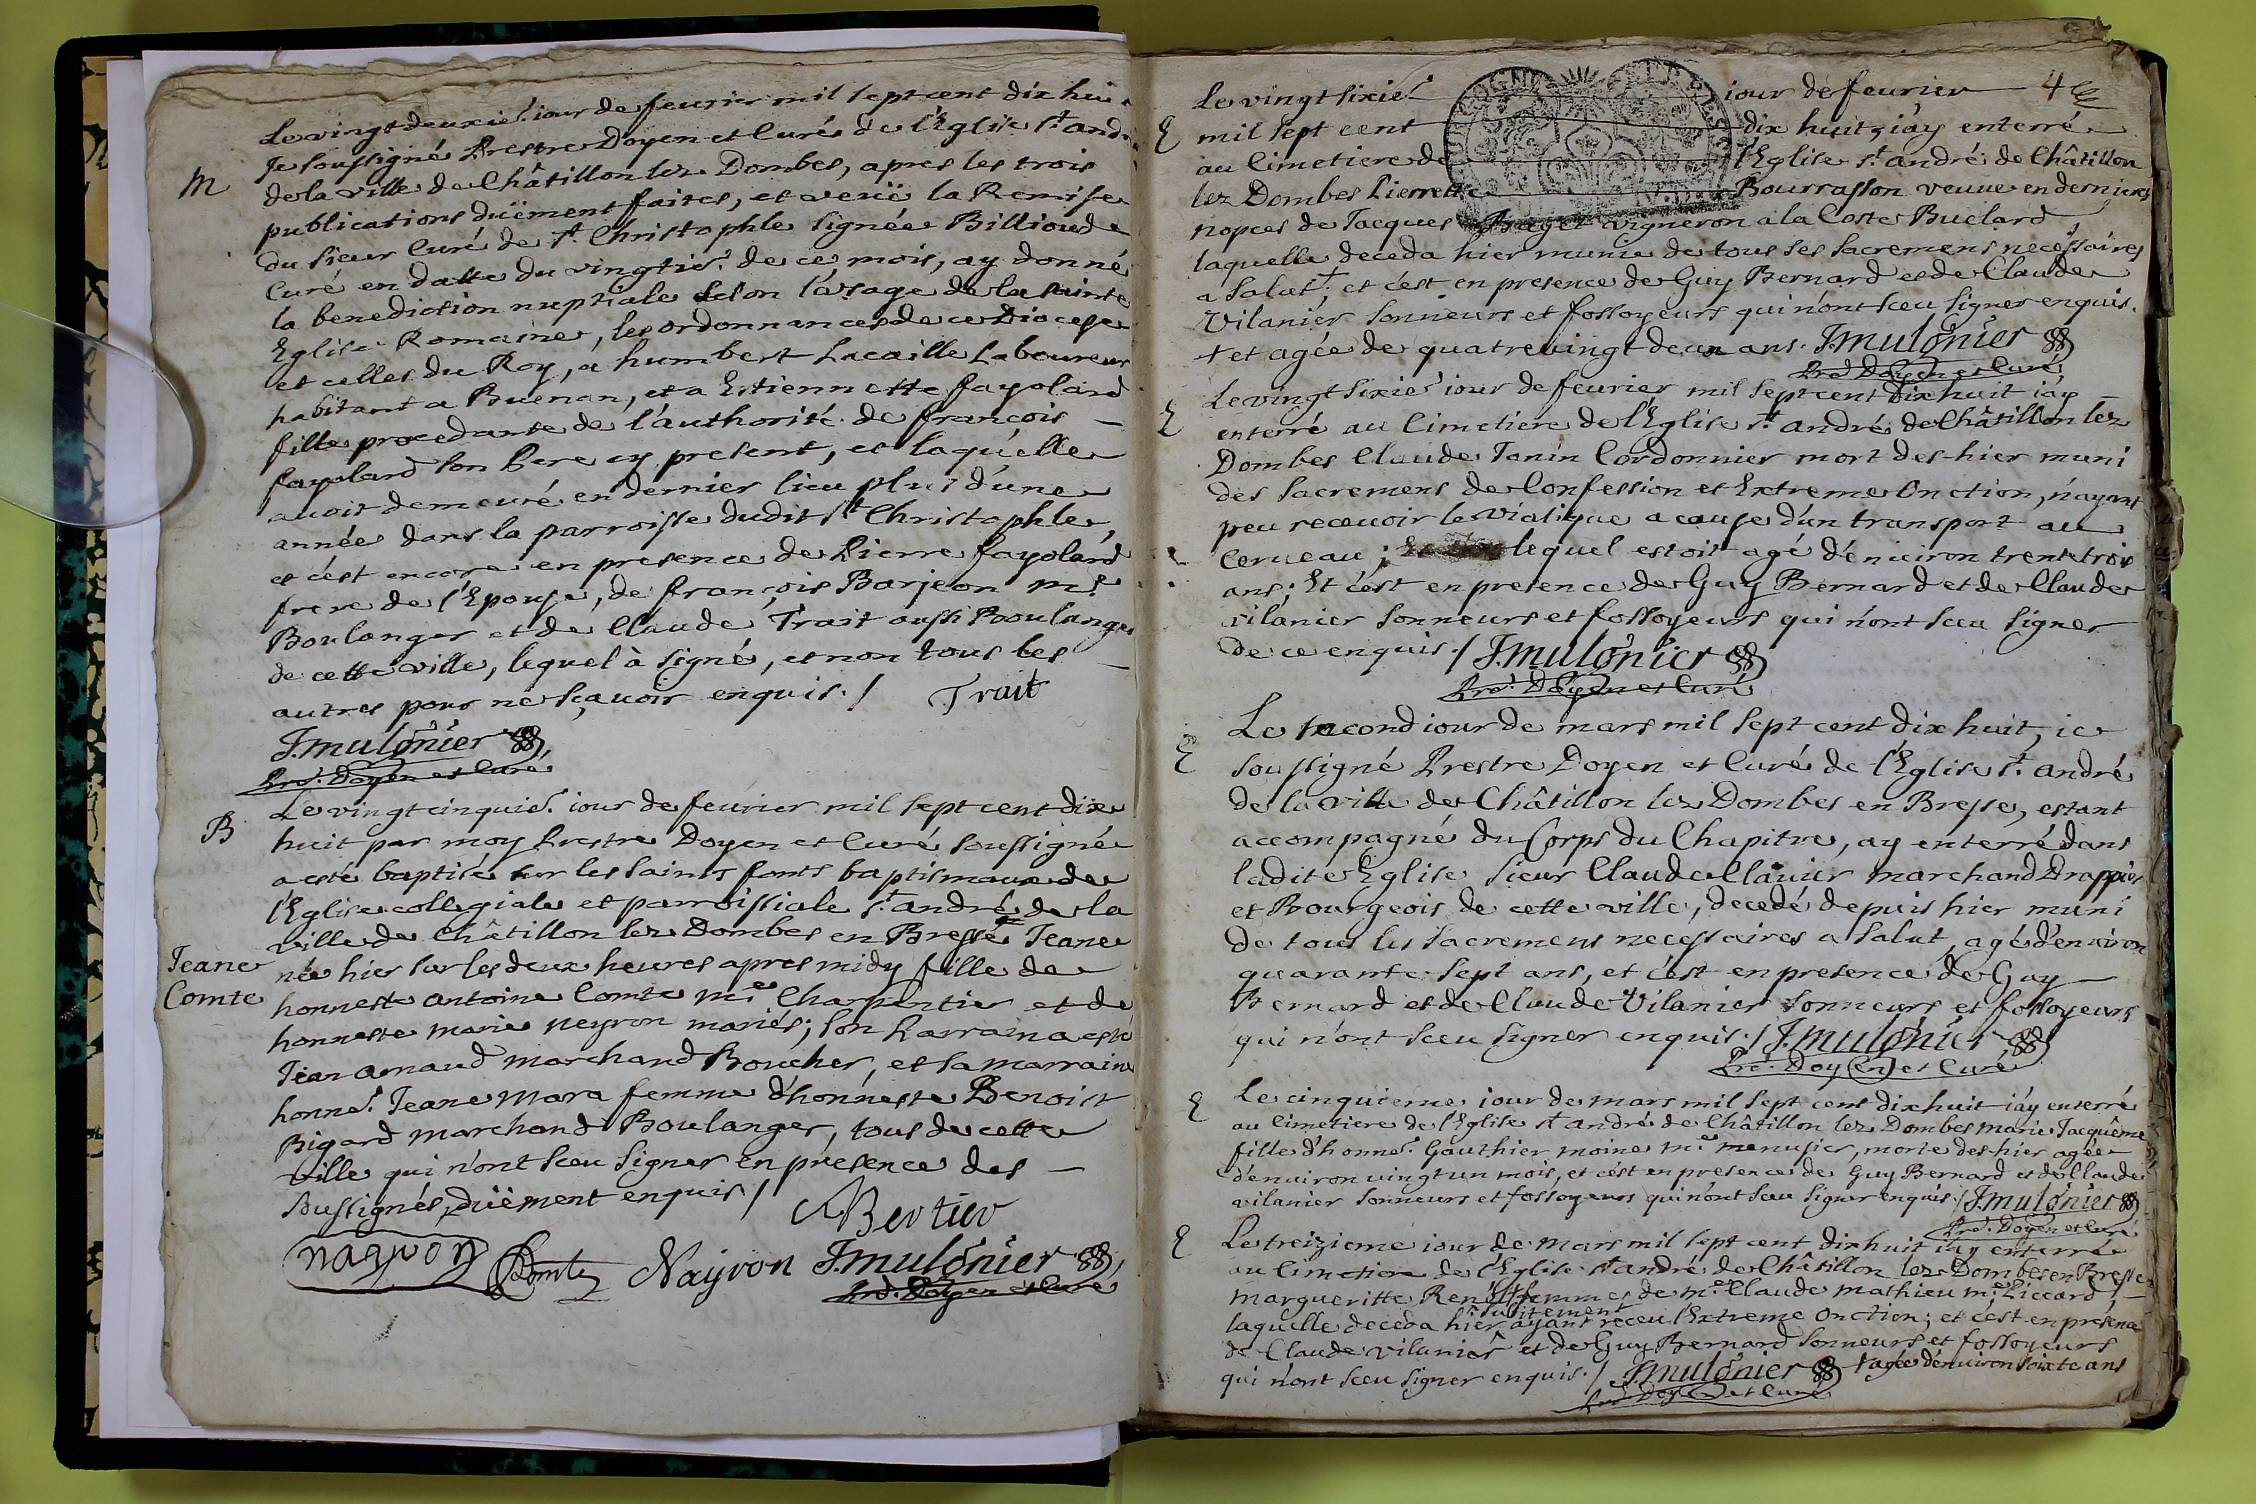 M
Le vingtdeuxie.^ iour de feurier mil sept cent dix hui
Je soussigné Prestre Doyen et Curé de l'Eglise S.^t and
de la ville de Châtillon lez Dombes, apres les trois
publications düement faites, et veuë la Remise
du sieur Curé de S.^t Christophle signée Billioud
Curé en datte du vingtie.^ de ce mois, ay donné
la benediction nuptiale selon l'usage de la sainte
Eglise Romaine, les ordonnances de ce Diocese
et celles du Roy, a humbert Lacaille Laboureur
habitant a Buenan, et a Estiennette fayolard
fille procedante de l'authorité de françois
fayolard son Pere cy present, et laquelle
auoit demeuré en dernier lieu plus d'une
année dans la parroisse dudit S^t Christophle,
et c'est encore en presence de Pierre fayolard
frere de l'Epouse, de françois Barjeon m.^e
Boulanger et de Claude Trait aussi Boulanger
de cette ville, lequel à signé, et non tous les
autres pour ne sçauoir enquis. / Trait
J. mulônier
Pre. Doyen et Curé
B
Jeane
Comte
Le vingtcinquie.^ iour de feurier mil sept cent dix
huit par moy Prestre Doyen et Curé soussigné
a esté baptisée sur les saints fonts baptismaux de
l'Eglise collegiale et parroissiale S.^t andré de la
ville de Châtillon lez Dombes en Bresse Jeane
née hier sur les deux heures apres midy fille de
honneste antoine Comte m.^e Charpentier et de
honneste marie neyron mariés; son Parrain a esté
Jean arnaud marchand Boucher, et sa marraine
honne.^ Jeane Mara femme d'honneste Benoist
Bigard marchand Boulanger, tous de cette
ville qui n'ont sceu signer en presence des
soussignés, düement enquis / Bertier
nayron Comte Nayron J. mulônier
Pre. Doyen et Curé
4
E
Le vingt sixie.^ iour de feurier
mil sept cent dix huit, i'ay enterré
au Cimetiere de l'Eglise S.^t andré de Châtillon
lez Dombes Pierrette Bourrasson veuue en dernieres
nopces de Jacques vigneron a la Coste Buelard,
laquelle deceda hier munie de tous ses sacremens necessaires
a salut,^+ et c'est en presence de Guy Bernard et de Claude
Vilanier sonneurs et fossoyeurs qui n'ont sceu signer enquis.
+ et agée de quatrevingt deux ans. J. mulônier
Pre. Doyen et Curé
E
Le vingt sixie.^ iour de feurier mil sept cent dix huit i'ay
enterré au Cimetiere de l'Eglise S.^t andré de Châtillon lez
Dombes Claude Tanin Cordonnier mort des-hier muni
des sacremens de Confession et Extreme Onction, n'ayant
peu receuoir le viatique a cause d'un transport au
Cerueau; lequel estoit agé d'enuiron trente trois
ans; Et c'est en presence de Guy Bernard et de Claude
vilanier sonneurs et fossoyeurs qui n'ont sceu signer
de ce enquis. / J. mulônier
Pre. Doyen et Curé
E
Le second iour de mars mil sept cent dix huit, ie
soussigné Prestre Doyen et Curé de l'Eglise S.^t andré
de la ville de Châtillon lez Dombes en Bresse, estant
accompagné du Corps du Chapitre, ay enterré dans
ladite Eglise sieur Claude Clauier marchand Drappier
et Bourgeois de cette ville, decedé depuis hier muni
de tous les sacremens necessaires a salut, agé d'enuiron
quarante sept ans, et c'est en presence de Guy
Bernard et de Claude Vilanier sonneurs et fossoyeurs
qui n'ont sceu signer enquis. / J. mulônier
Pre. Doyen et Curé
E
Le cinquieme iour de mars mil sept cent dix huit i'ay enterré
au Cimetiere de l'Eglise S^t andré de Châtillon lez Dombes marie Jacquême
fille d'honne.^ Gauthier moine m.^e menusier, morte des-hier agée
d'enuiron vingt un mois, et c'est en presence de Guy Bernard et de Claude
vilanier sonneurs et fossoyeurs qui n'ont sceu signer enquis. / J. mulônier
Pre. Doyen et Curé
E
Le treizieme iour de mars mil sept cent dix huit i'ay enterré
au Cimetiere de l'Eglise S^t andré de Châtillon lez Dombes en Bresse
margueritte femme de m.^e Claude mathieu m.^e Piccard,
laquelle deceda hier subitement ayant receu l'Extreme Onction; et c'est en presence
de Claude vilanier et de Guy Bernard sonneurs et fossoyeurs
qui n'ont sceu signer enquis. / J. mulônier + agée d'enuiron soixte ans
Pre. Doyen et Curé